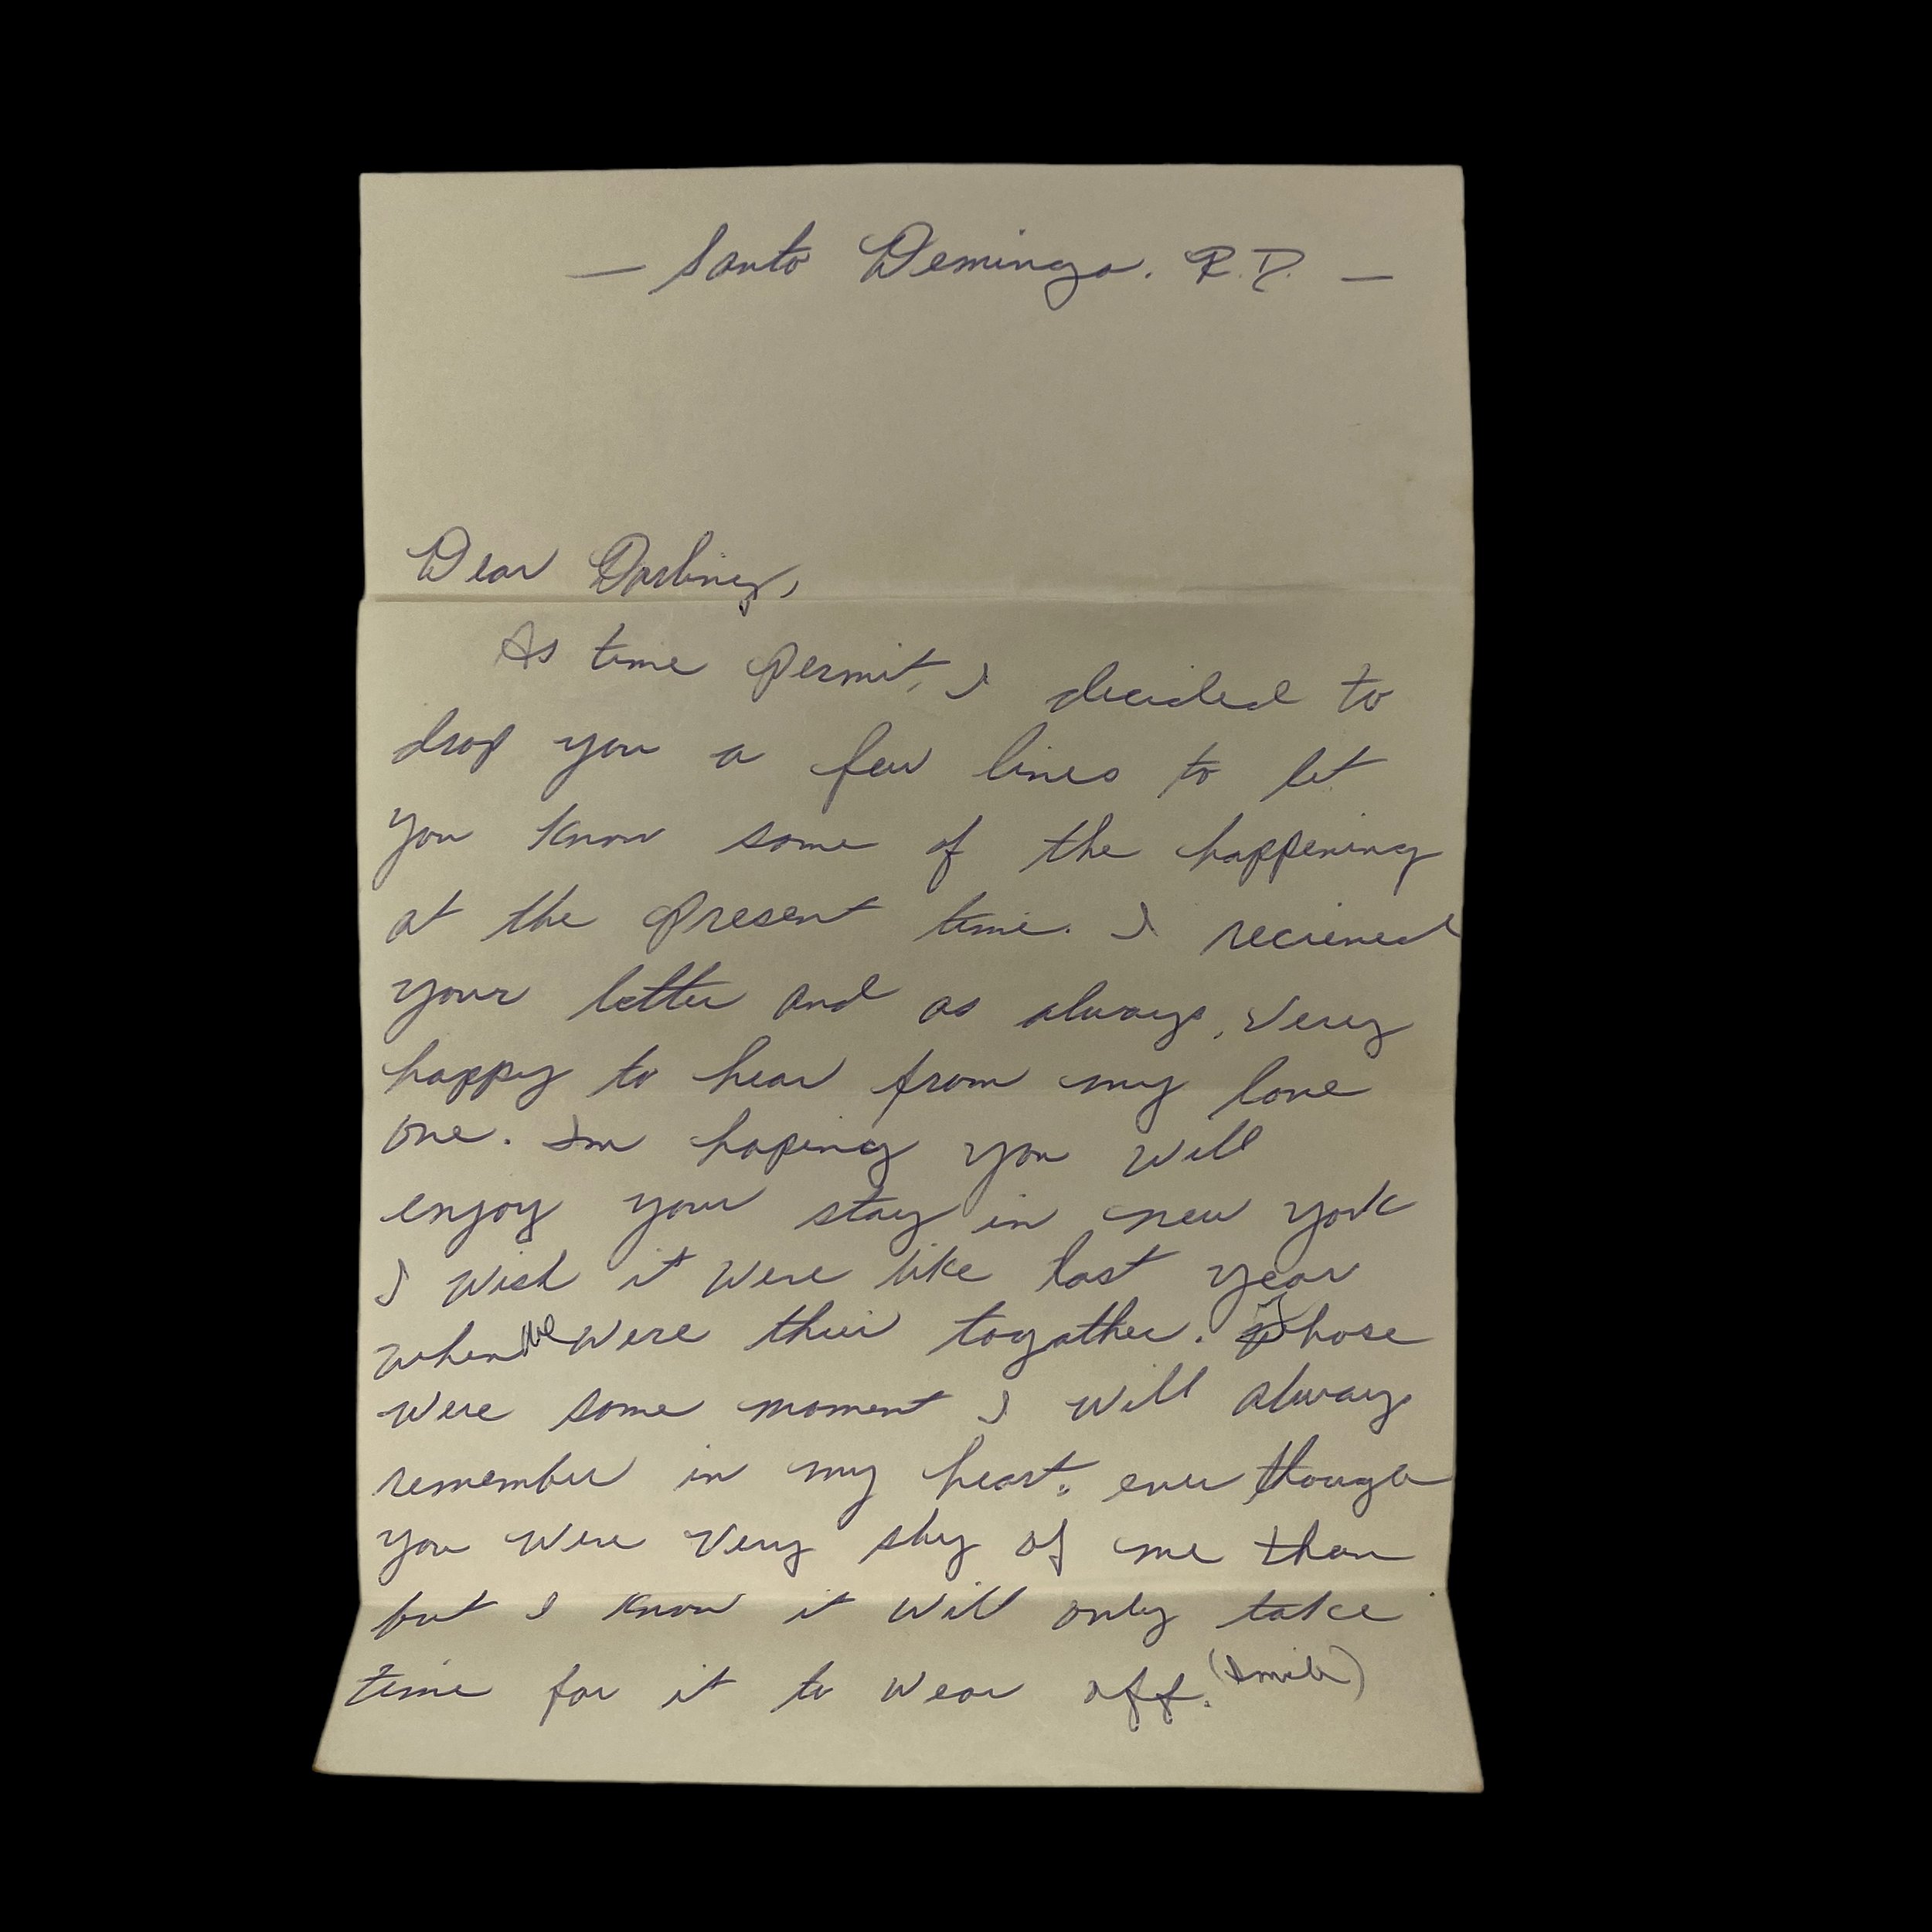 — Santo Domingo. R.D. —
Dear Darling,
As time permit, I decided to
drop you a few lines to let
you know some of the happening
at the present time. I recieved
your letter and as always, very
happy to hear from my love
one. Im hoping you will
enjoy your stay in new york
I wish it were like last year
when we were their togather. Those
were some moment I will always
remember in my heart. even though
you were very shy of me than
but I know it will only take
time for it to wear off. (smile)